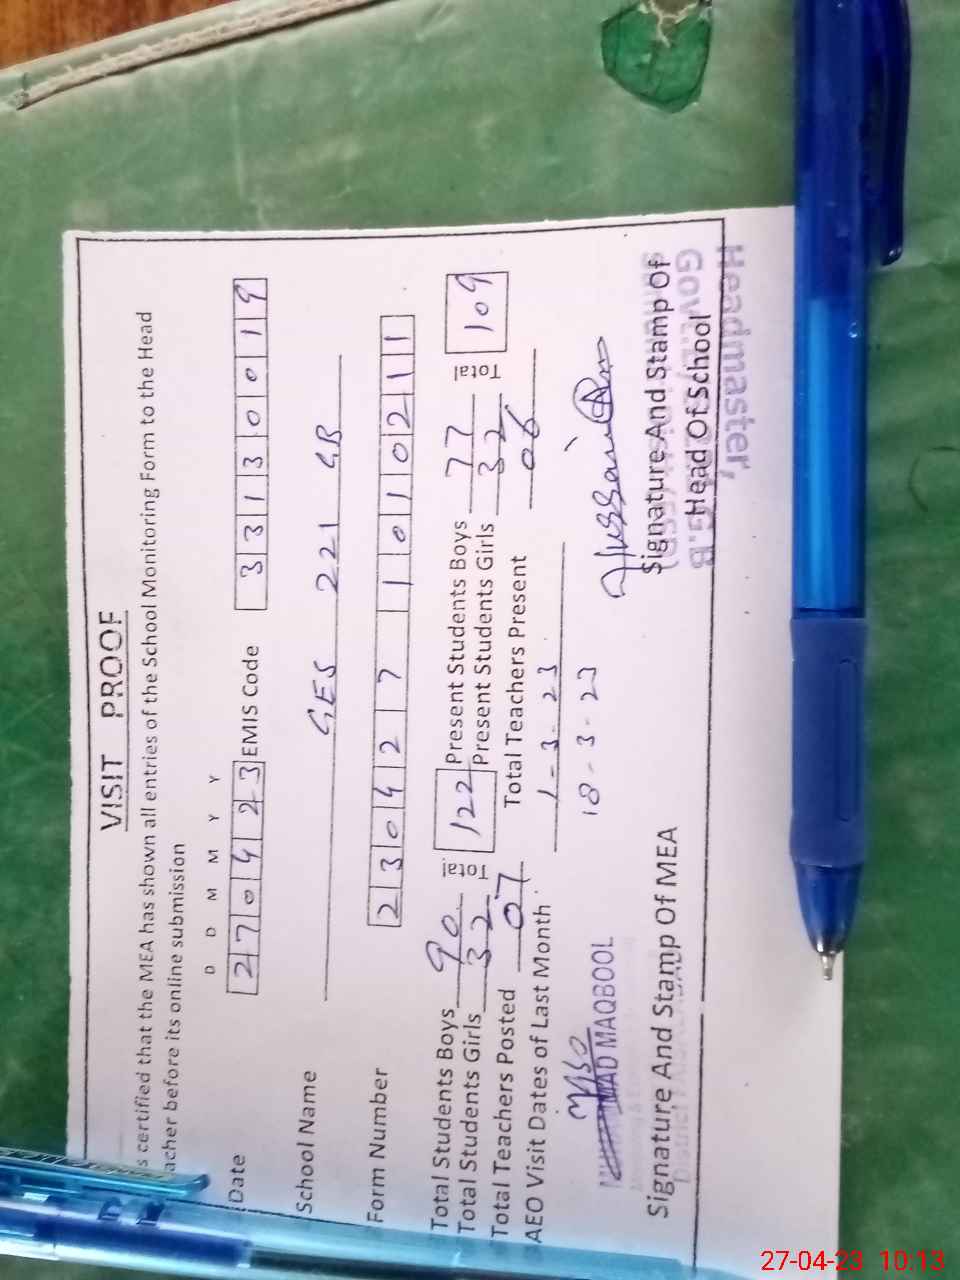 VISIT PROOF
s certified that the MEA has shown all entries of the School Monitoring Form to the Head
acher before its online submission
D D M M Y Y
Date 270423 EMIS Code 33130019
School Name GES 221 GB
Form Number 230427 110 10211
Total Students Boys 90 Total 122 Present Students Boys 77 Total 109
Total Students Girls 32 Present Students Girls 32
Total Teachers Posted 07 Total Teachers Present 06
AEO Visit Dates of Last Month 1-3-23
18-3-23
MAD MAQBOOL
Signature And Stamp Of MEA
Signature And Stamp Of
Head Of School
Headmaster,
27-04-23 10:13